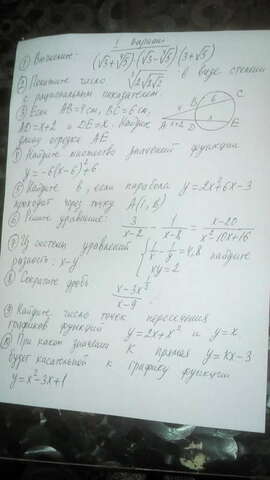 1 вариант
① Вычислите: (√3+√5)·(√3-√5)(3+√5)
② Покажите число ³√2√2√2 в виде степени
с рациональным показателем
③ Если AB=4см, BC=6см,
AD=x+2 и DE=x. Найдите
длину отрезка AE
B 6 C
A x+2 D x E
④ Найдите множество значений функции
y=-6(x-6)²+6
⑤ Найдите b, если парабола y=2x²+6x-3
проходит через точку A(1, b)
⑥ Решите уравнение: 3/(x-2) - 1/(x-8) = (x-20)/(x²-10x+16)
⑦ Из системы уравнений {1/x - 1/y = 4,8 найдите
разность x-y {xy=2
⑧ Сократите дробь (x-3x^½)/(x-9).
⑨ Найдите число точек пересечения
графиков функций y=2x+x² и y=x.
⑩ При каком значении K прямая y=Kx-3
будет касательной к графику функции
y=x²-3x+1